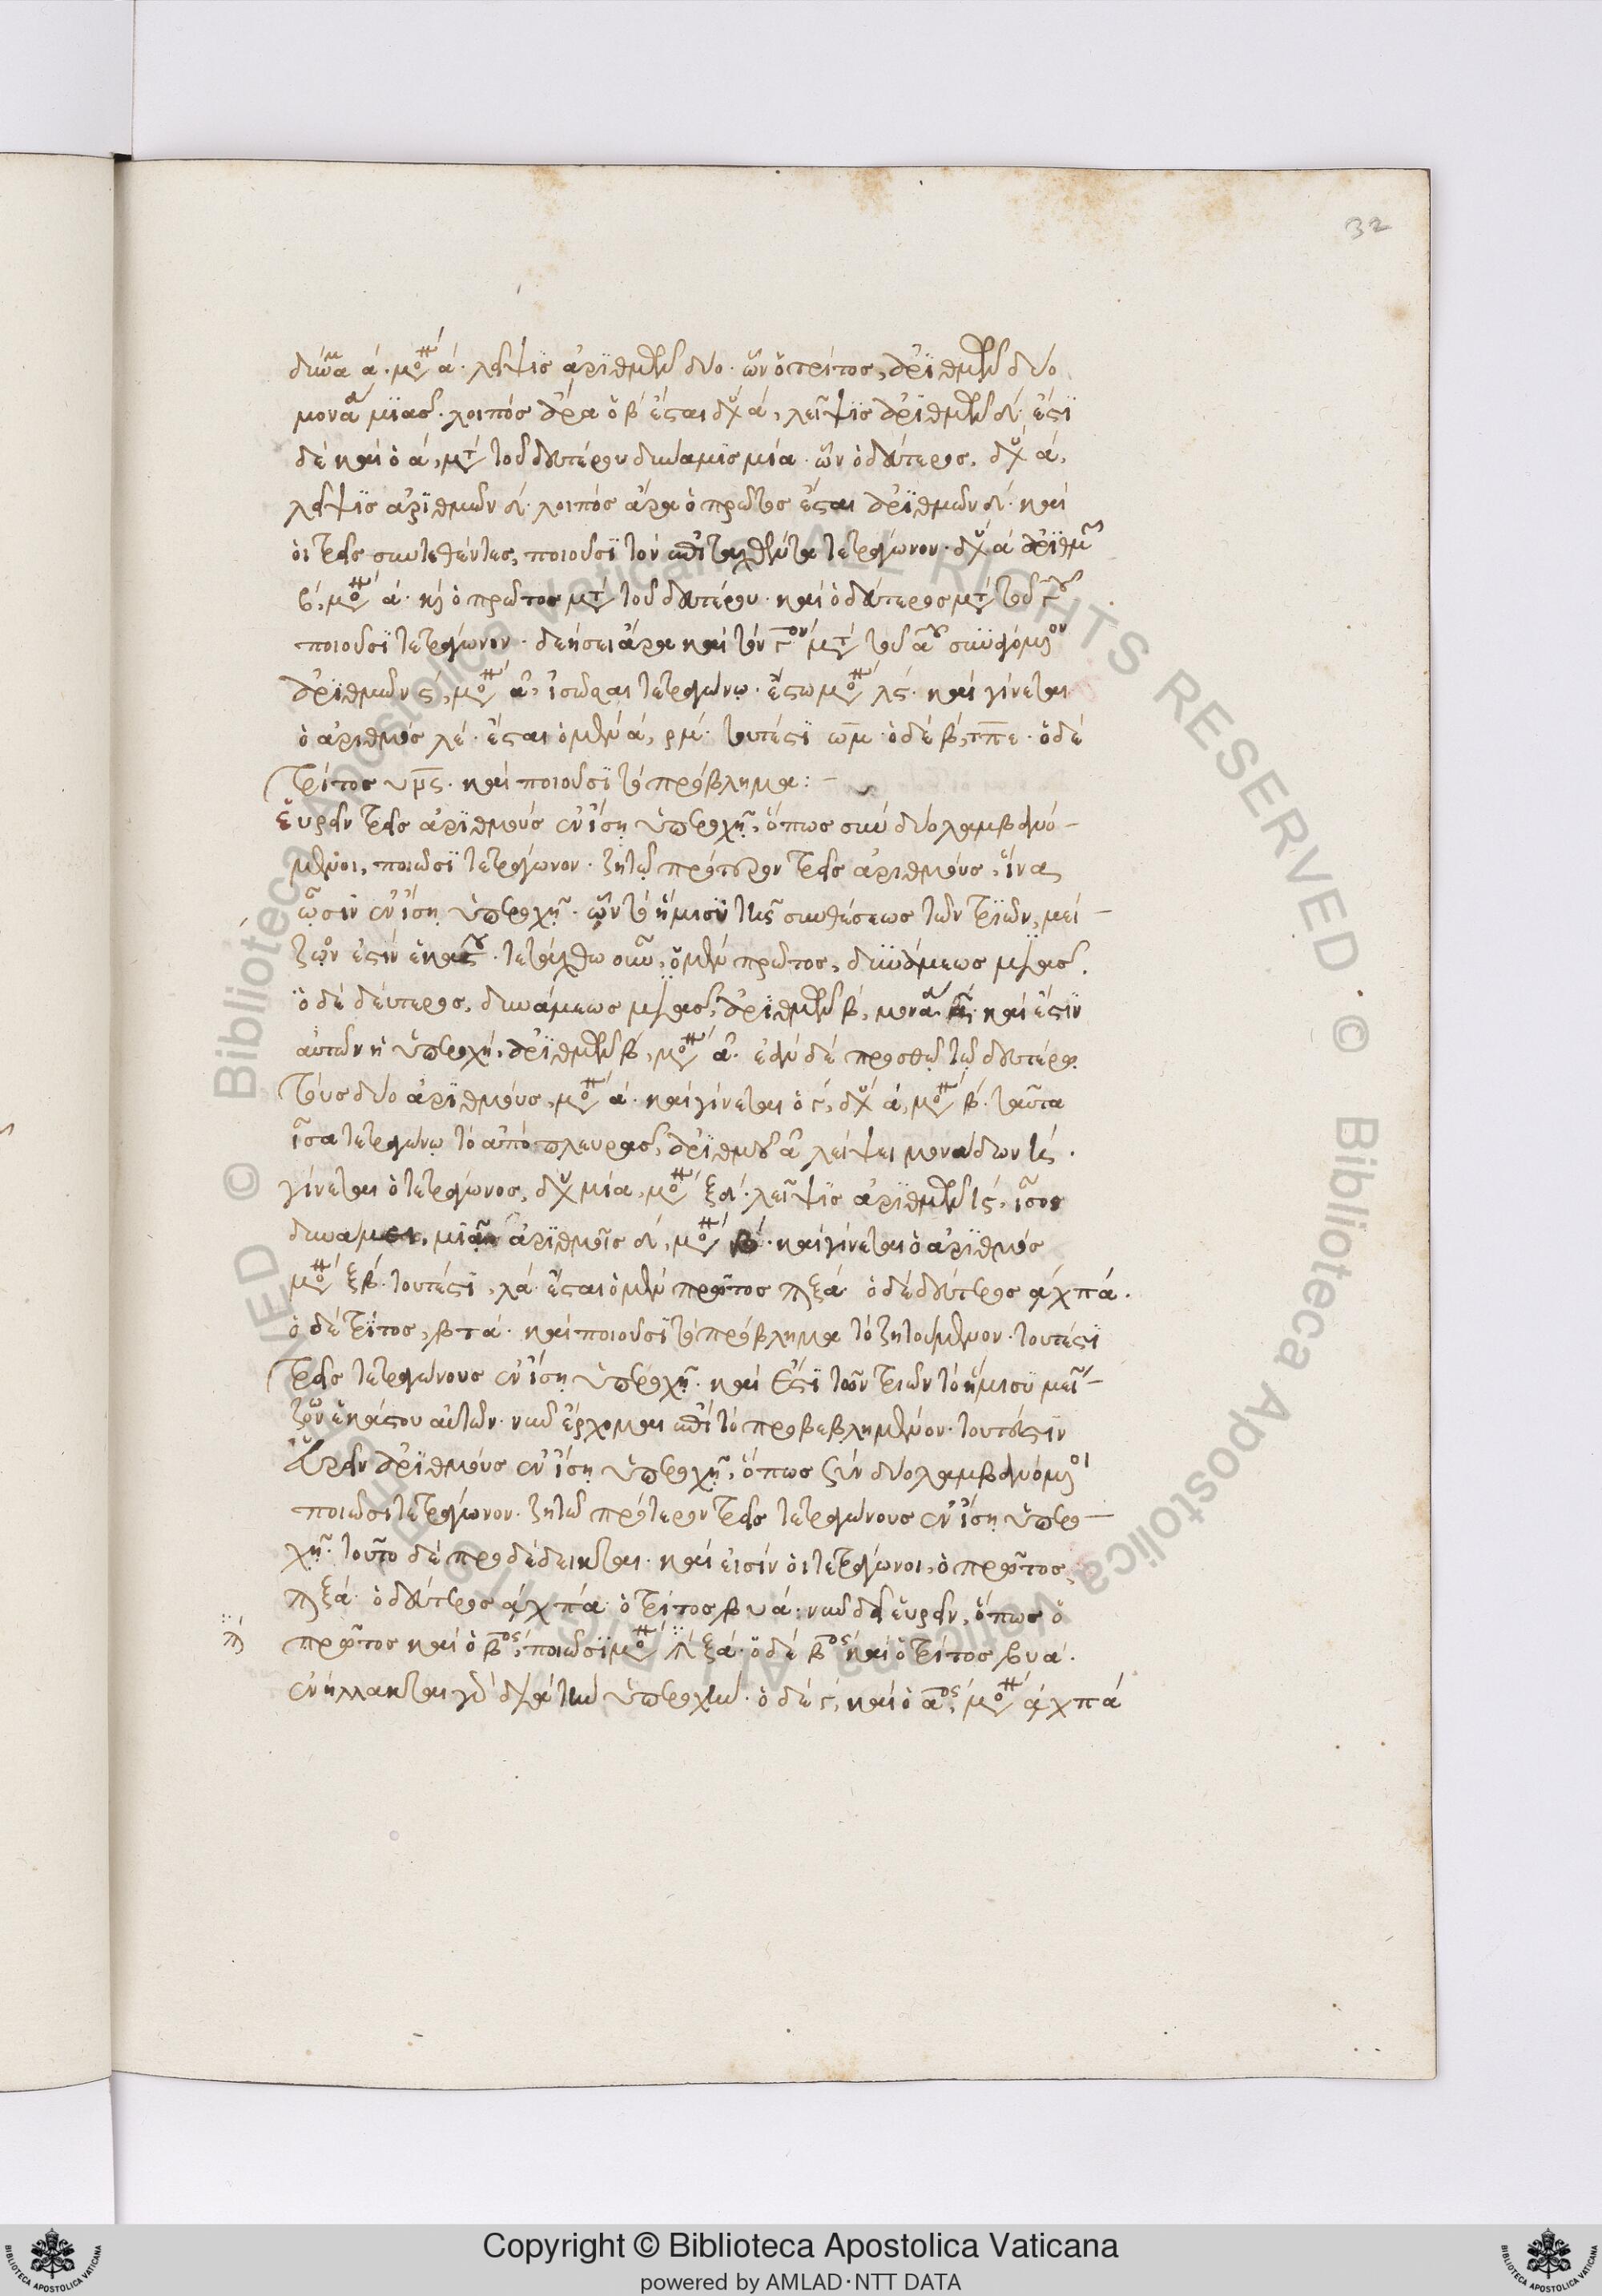 32
δύνα ά. μο ά. λεῖψις ἀρϊθμῶν δύο. ὧν ὁ τρίτος, ἀρϊθμῶν δύο
μονα μϊᾶς. λοιπός ἄρα ὁ β ἔσται δυ ά, λεῖψϊς ἀρϊθμῶν δ. ἐστϊ
δέ καί ὁ ά, μτ τοῦ δευτέρου δυναμϊς μία. ὧν ὁ δεύτερος, δυ ά,
λεῖψϊς ἀρϊθμῶν δ. λοιπός ἄρα ὁ πρῶτος ἔσται ἀρϊθμῶν δ. καί
ὁι τρεῖς συντεθέντες, ποιοῦσϊ τόν ἐπιταχθέντα τετράγωνον. δυ ά ἀρϊθμ
β, μο ά. κ ὁ πρῶτος μτ τοῦ δευτέρου. καί ὁ δεύτερος μτ τοῦ γου
ποιοῦσϊ τετράγωνον. δεήσει ἄρα καί τόν γον μτ τοῦ αου συγκείμενον
ἀρϊθμῶν ς, μο ά, ἰσῶσαι τετραγώνῳ. ἔστω μο λς. καί γίνεται
ὁ ἀριθμός λέ. ἔσται ὁ μέν ά, ρμ. τουτέστϊ ωμ. ὁ δέ β, τπε. ὁ δέ
τρίτος υμς. καί ποιοῦσϊ τό πρόβλημα:–
Ἑυρεῖν τρεῖς ἀρϊθμούς ἐν ἴσῃ ὑπεροχῇ, ὅπως σύν δύο λαμβανό–
μενοι, ποιῶσϊ τετράγωνον. ζητῶ πρότερον τρεῖς ἀριθμούς, ἵνα
ὦσιν ἐν ἴσῃ ὑπεροχῇ. ὧν τό ἥμισϋ τῆς συνθέσεως τῶν τρϊῶν, μεί–
ζων ἐστίν ἑκάστου. τετάχθω οὖν, ὁ μέν πρῶτος, δυνάμεως μιᾶς.
ὁ δέ δεύτερος, δυνάμεως μιᾶς, ἀρϊθμῶν β, μονα ά. καί ἐστϊν
αὐτῶν ἡ ὑπεροχή, ἀρϊθμῶν β, μο ά. ἐάν δέ προσθῶ τῷ δευτέρῳ
τούς δύο ἀρϊθμούς, μο ά. καί γίνεται ὁ γ, δυ ά, μο β. ταῦτα
ἶσα τετραγώνῳ τό ἀπό πλευρᾶς, ἀρϊθμοῦ ά λείψει μονάδων ις.
γίνεται ὁ τετράγωνος, δυ μία, μο ξδ. λεῖψϊς ἀρϊθμῶν ις, ἶσος
δυνάμει, μιᾷ ἀρϊθμοῖς δ, μο β. καί γίνεται ὁ ἀρϊθμός
μο ξβ. τουτέστϊ, λά. ἔσται ὁ μέν πρῶτος ϡξά. ὁ δέ δεύτερος ᾳχπά.
ὁ δέ τρίτος, βτά. καί ποιοῦσϊ τό πρόβλημα τό ζητούμενον. τουτέστϊ
τρεῖς τετραγώνους ἐν ἴσῃ ὑπεροχῇ. καί ἔστϊ τῶν τριῶν τό ἥμισϋ μεῖ–
ζον ἑκάστου αὐτῶν. νῦν ἔρχομαι ἐπί τό προβεβλημένον. τουτέστϊν
Ἑυρεῖν ἀρϊθμούς ἐν ἴσῃ ὑπεροχῇ, ὅπως σύν δύο λαμβανόμενοι
ποιῶσι τετράγωνον. ζητῶ πρότερον τρεῖς τετραγώνους ἐν ἴσῃ ὑπερο–
χῇ. τοῦτο δέ προδέδεικται. καί εἰσίν ὁι τετράγωνοι, ὁ πρῶτος
ϡξά. ὁ δεύτερος ᾳχπά. ὁ τρίτος βυά: νῦν δεῖ εὑρεῖν, ὅπως ὁ
πρῶτος καί ὁ βος, ποιῶσϊ μο ϡξά. ὁ δέ βος καί ὁ τρίτος βυά.
ἐνήλλακται γάρ διά τήν ὑπεροχήν. ὁ δέ γ, καί ὁ αος, μο ᾳχπά